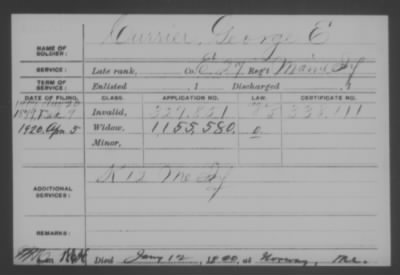 NAME OF SOLDIER: Currier, George E
SERVICE: Late rank, Co. E, 29 Reg't Maine Inf
TERM OF SERVICE: Enlisted , 1 Discharged , 1
DATE OF FILING. CLASS. APPLICATION NO. LAW. CERTIFICATE NO.
Invalid,
1920, Apr. 5 Widow, 1155,580.
Minor,
ADDITIONAL SERVICES: K 12 Me Inf
REMARKS:
Died Jany 12, at Norway, Me.